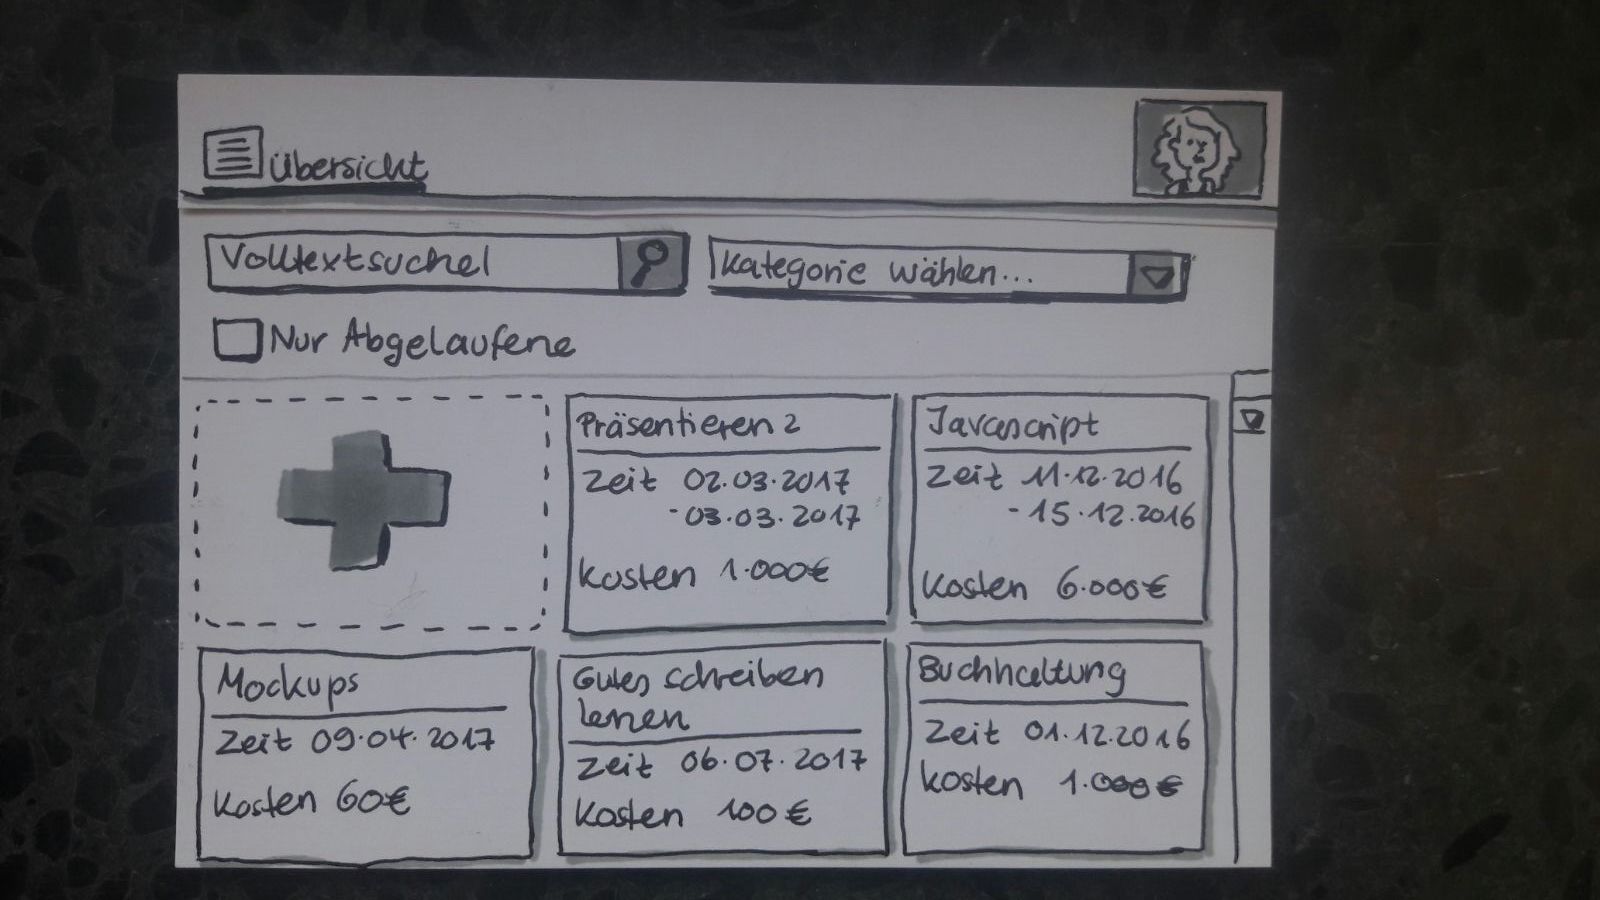 Übersicht
Volltextsuche|
Kategorie wählen...
Nur Abgelaufene
Präsentieren 2
Zeit 02.03.2017
-03.03.2017
Kosten 1.000€
Javascript
Zeit 11.12.2016
- 15.12.2016
Kosten 6.000€
Mockups
Zeit 09.04.2017
Kosten 60€
Gutes schreiben
lernen
Zeit 06.07.2017
Kosten 100€
Buchhaltung
Zeit 01.12.2016
Kosten 1.000€